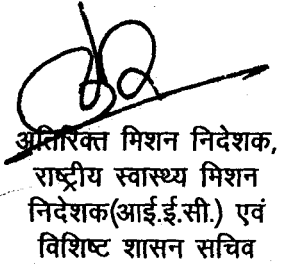 अतिरिक्त मिशन निदेशक,
राष्ट्रीय स्वास्थ्य मिशन
निदेशक(आई.ई.सी.) एवं
विशिष्ट शासन सचिव